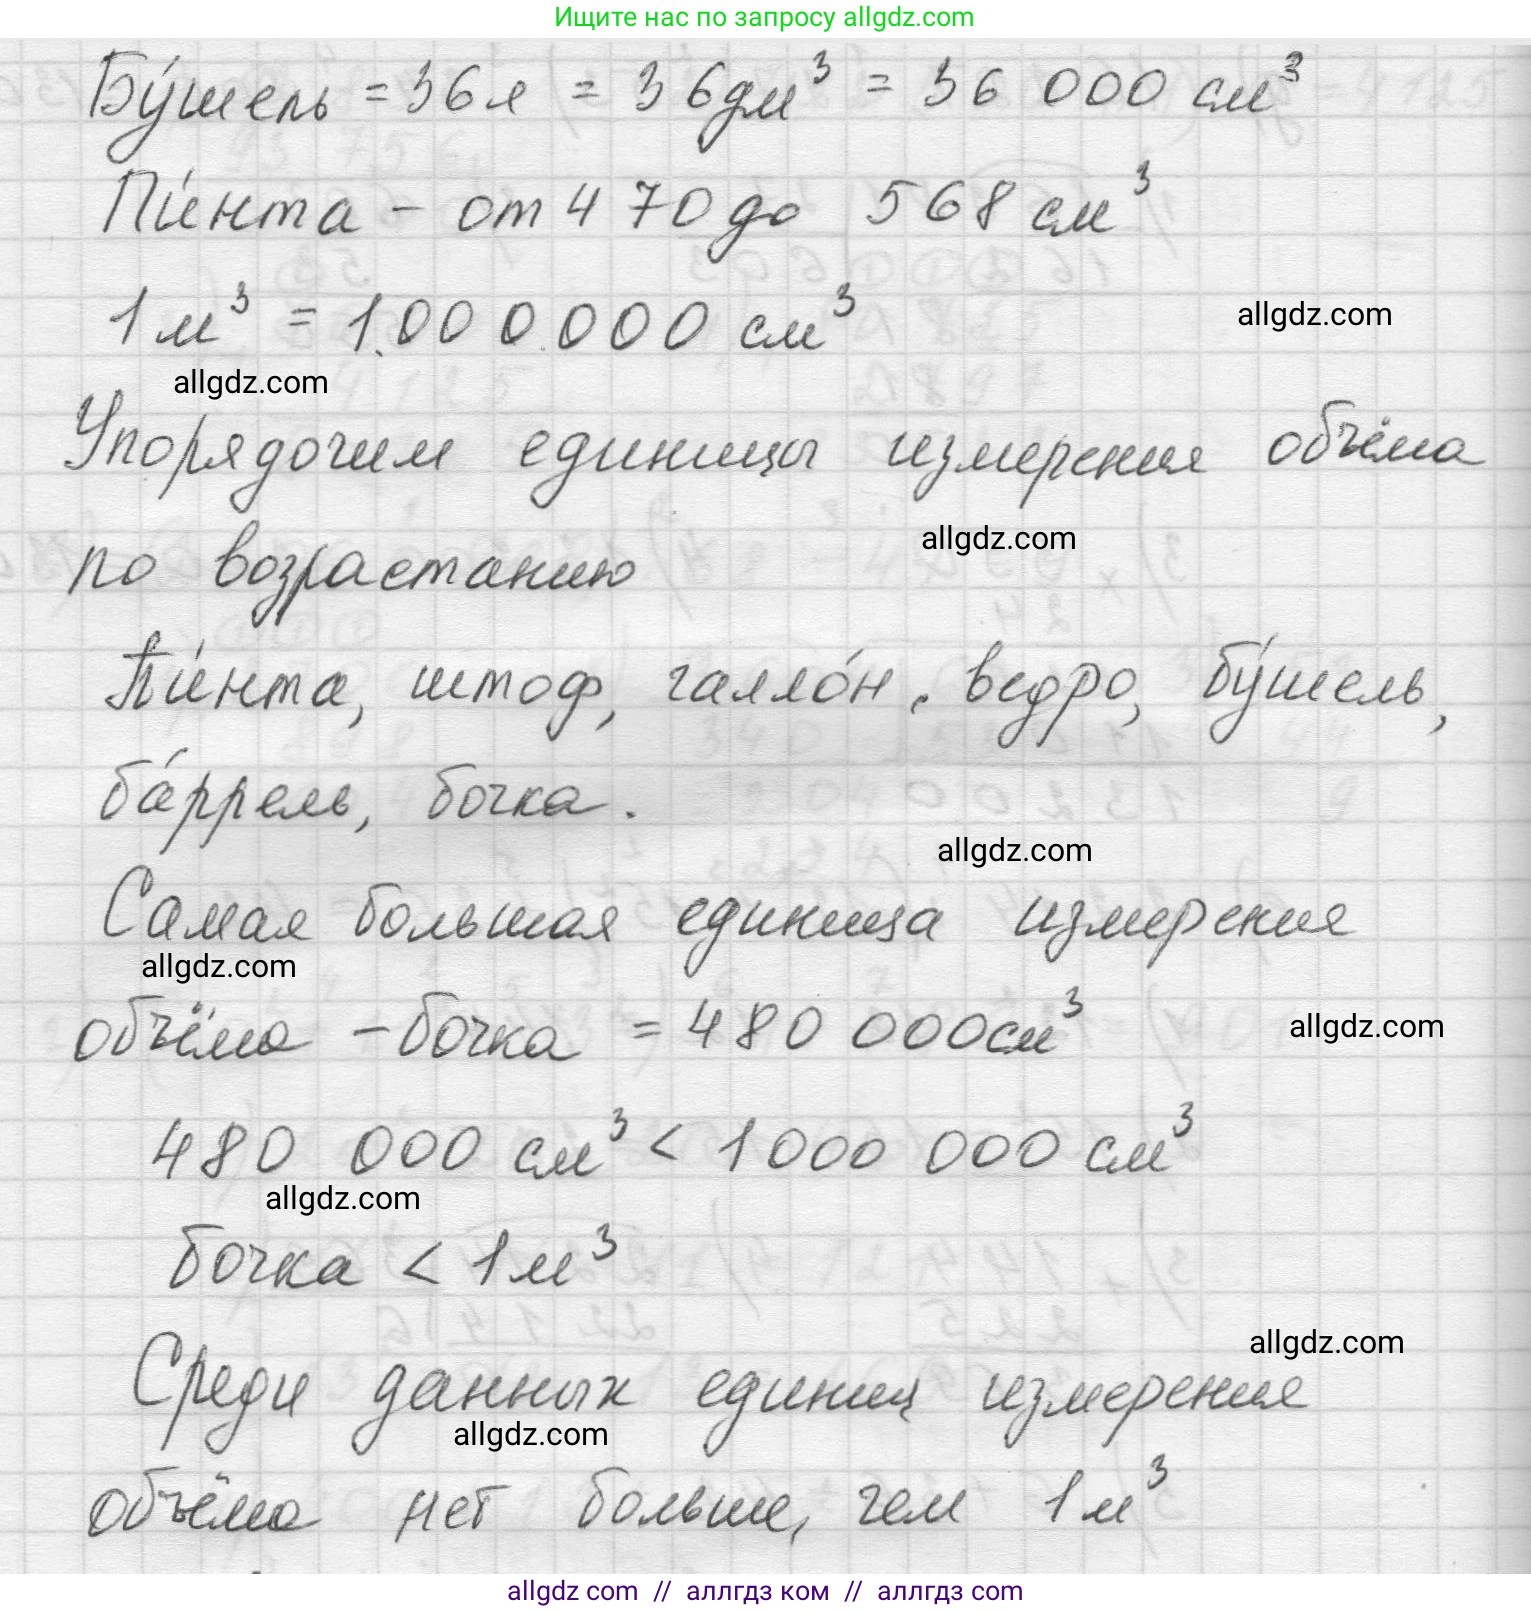 Ищите нас по запросу allgdz.com
Бу́шель = 36л = 36дм³ = 36 000 см³
Пи́нта – от 470 до 568 см³
1 м³ = 1.000.000 см³
allgdz.com
allgdz.com
Упорядочим единицы измерения объёма
по возрастанию
allgdz.com
Пи́нта, штоф, галло́н, ведро, бу́шель,
ба́ррель, бочка.
allgdz.com
Самая большая единица измерения
allgdz.com
объёма – бочка = 480 000см³
allgdz.com
480 000 см³ < 1000 000 см³
allgdz.com
бочка < 1м³
allgdz.com
Среди данных единиц измерения
allgdz.com
объёма нет больше, чем 1м³
allgdz.com // аллгдз ком // аллгдз.com